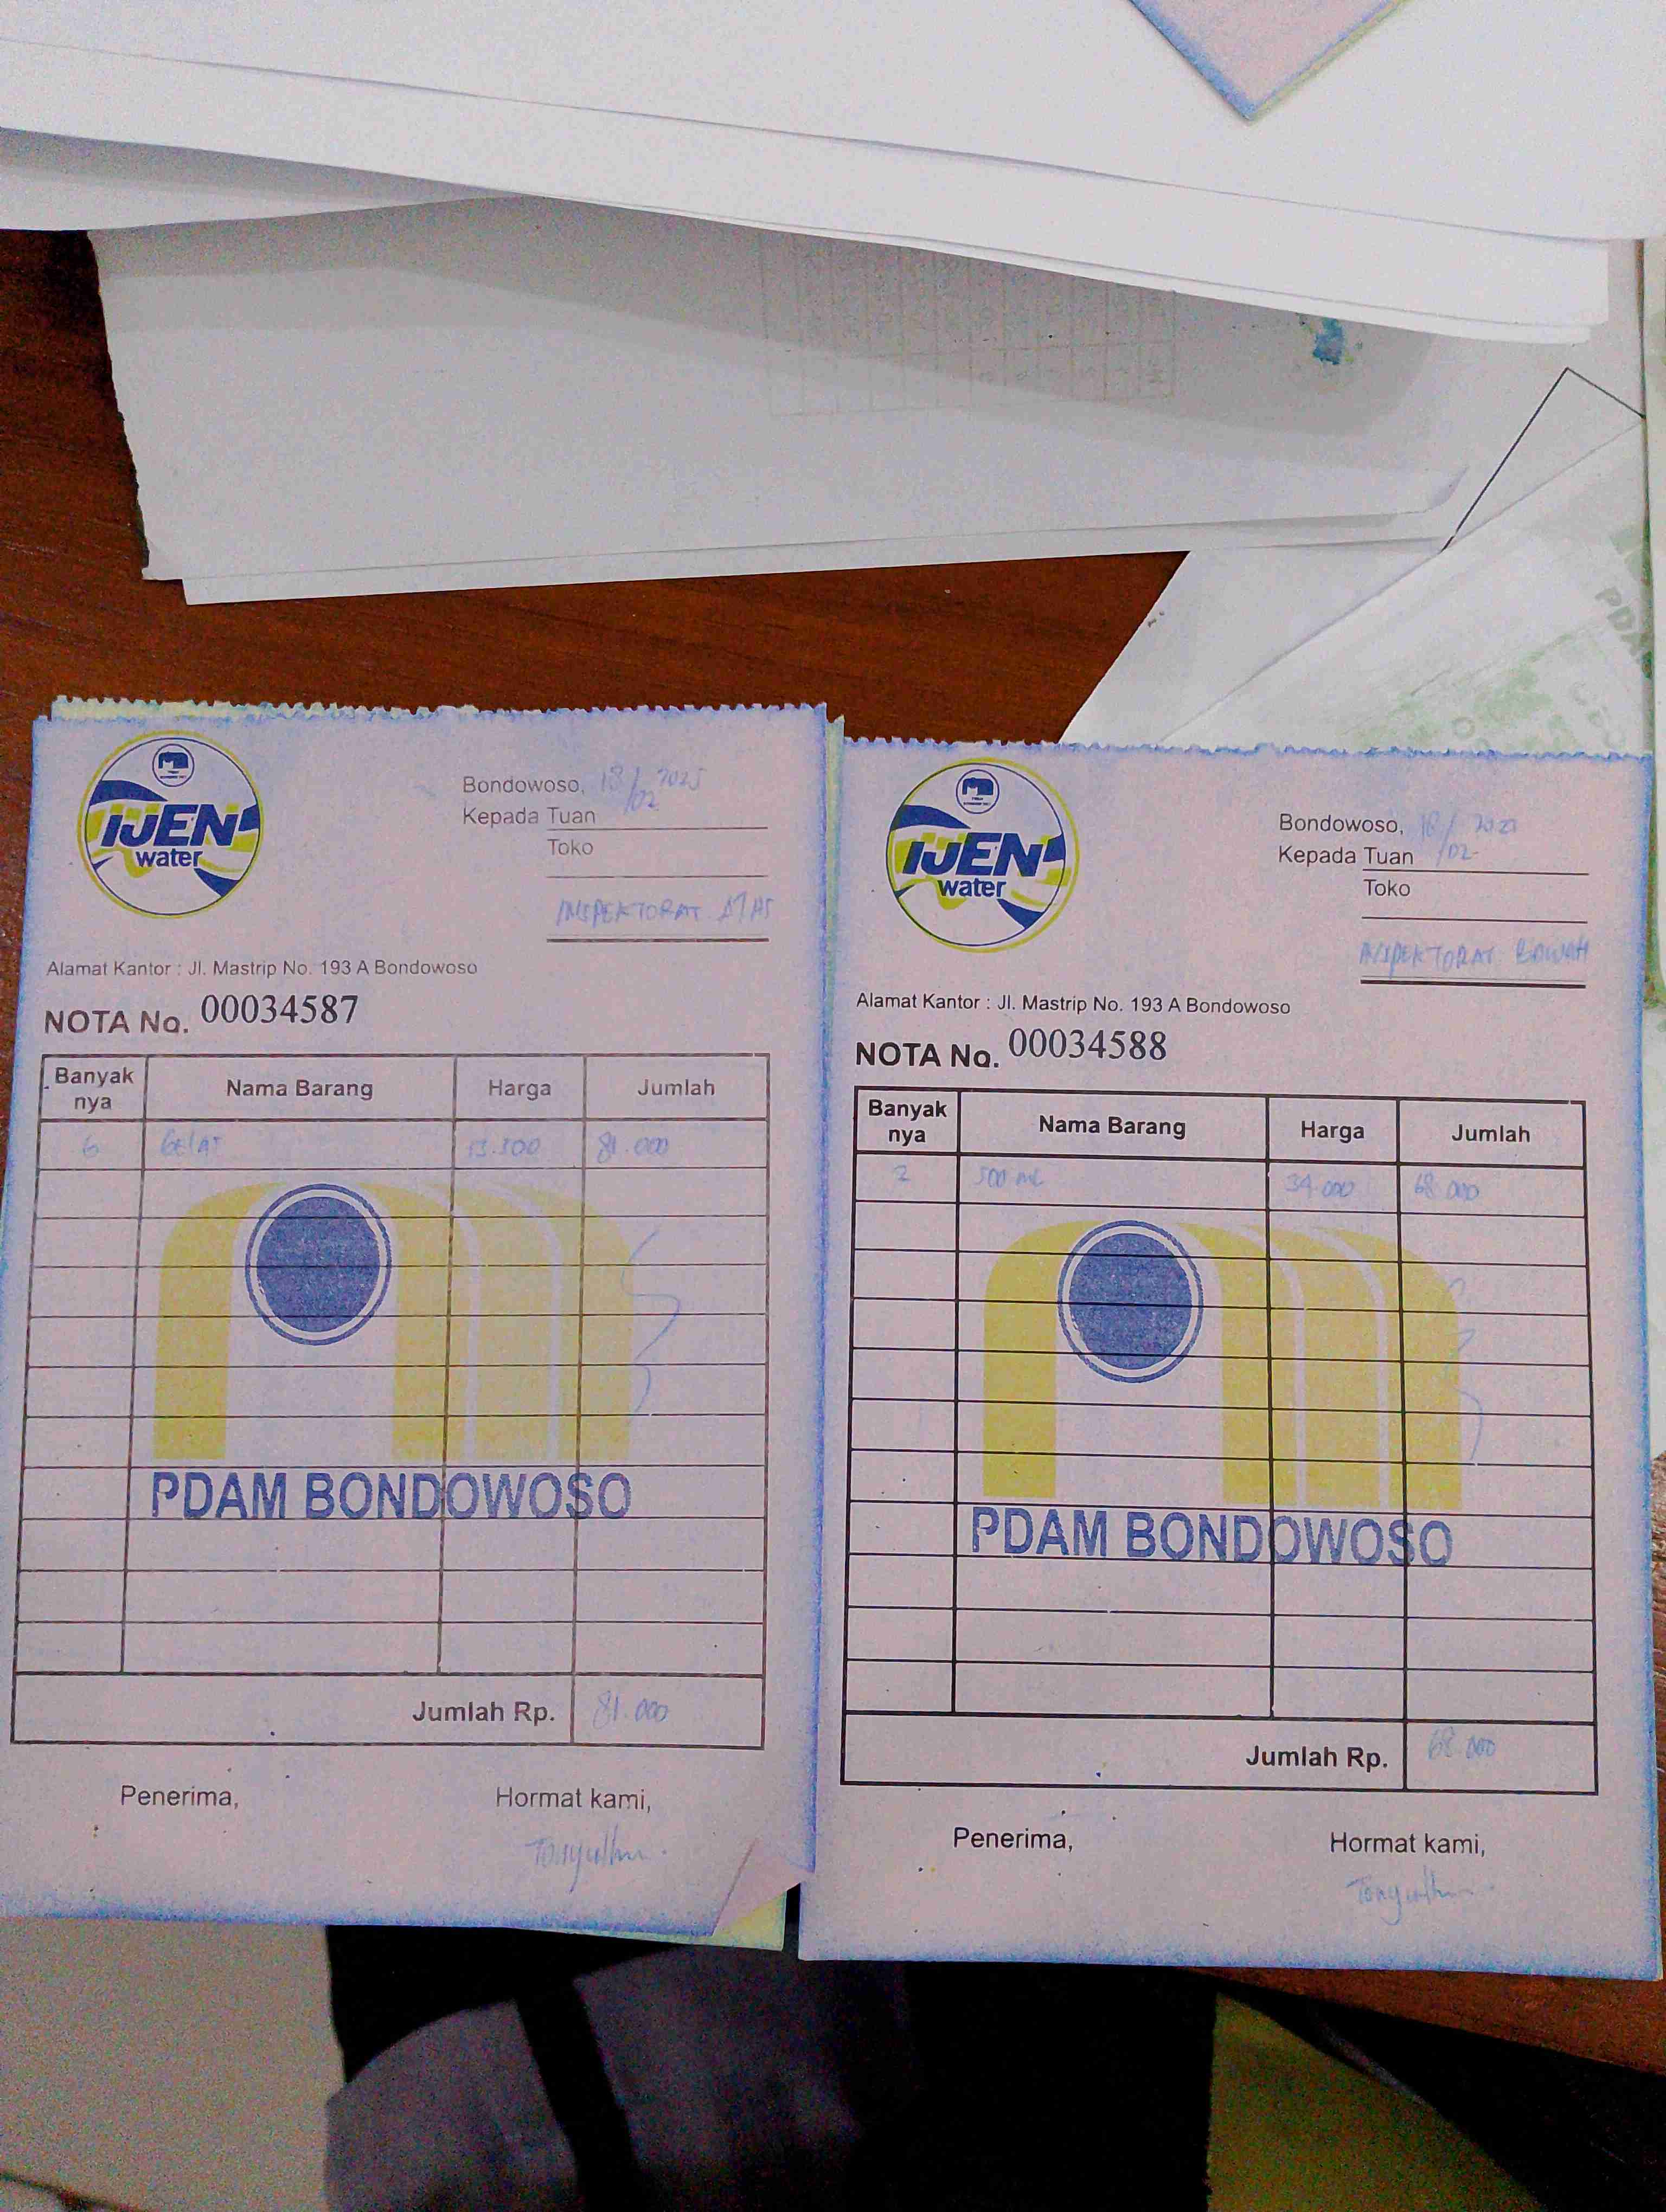 IJEN
water
Bondowoso, 18/02 2025
Kepada Tuan
Toko
INSPEKTORAT ATAS
Alamat Kantor : Jl. Mastrip No. 193 A Bondowoso
NOTA No. 00034587
Banyak nya Nama Barang Harga Jumlah
6 GELAS 13.500 81.000
PDAM BONDOWOSO
Jumlah Rp. 81.000
Penerima, Hormat kami,
IJEN
water
Bondowoso, 18/02
Kepada Tuan
Toko
INSPEKTORAT BAWAH
Alamat Kantor : Jl. Mastrip No. 193 A Bondowoso
NOTA No. 00034588
Banyak nya Nama Barang Harga Jumlah
2 500 ML 34.000 68.000
PDAM BONDOWOSO
Jumlah Rp. 68.000
Penerima, Hormat kami,